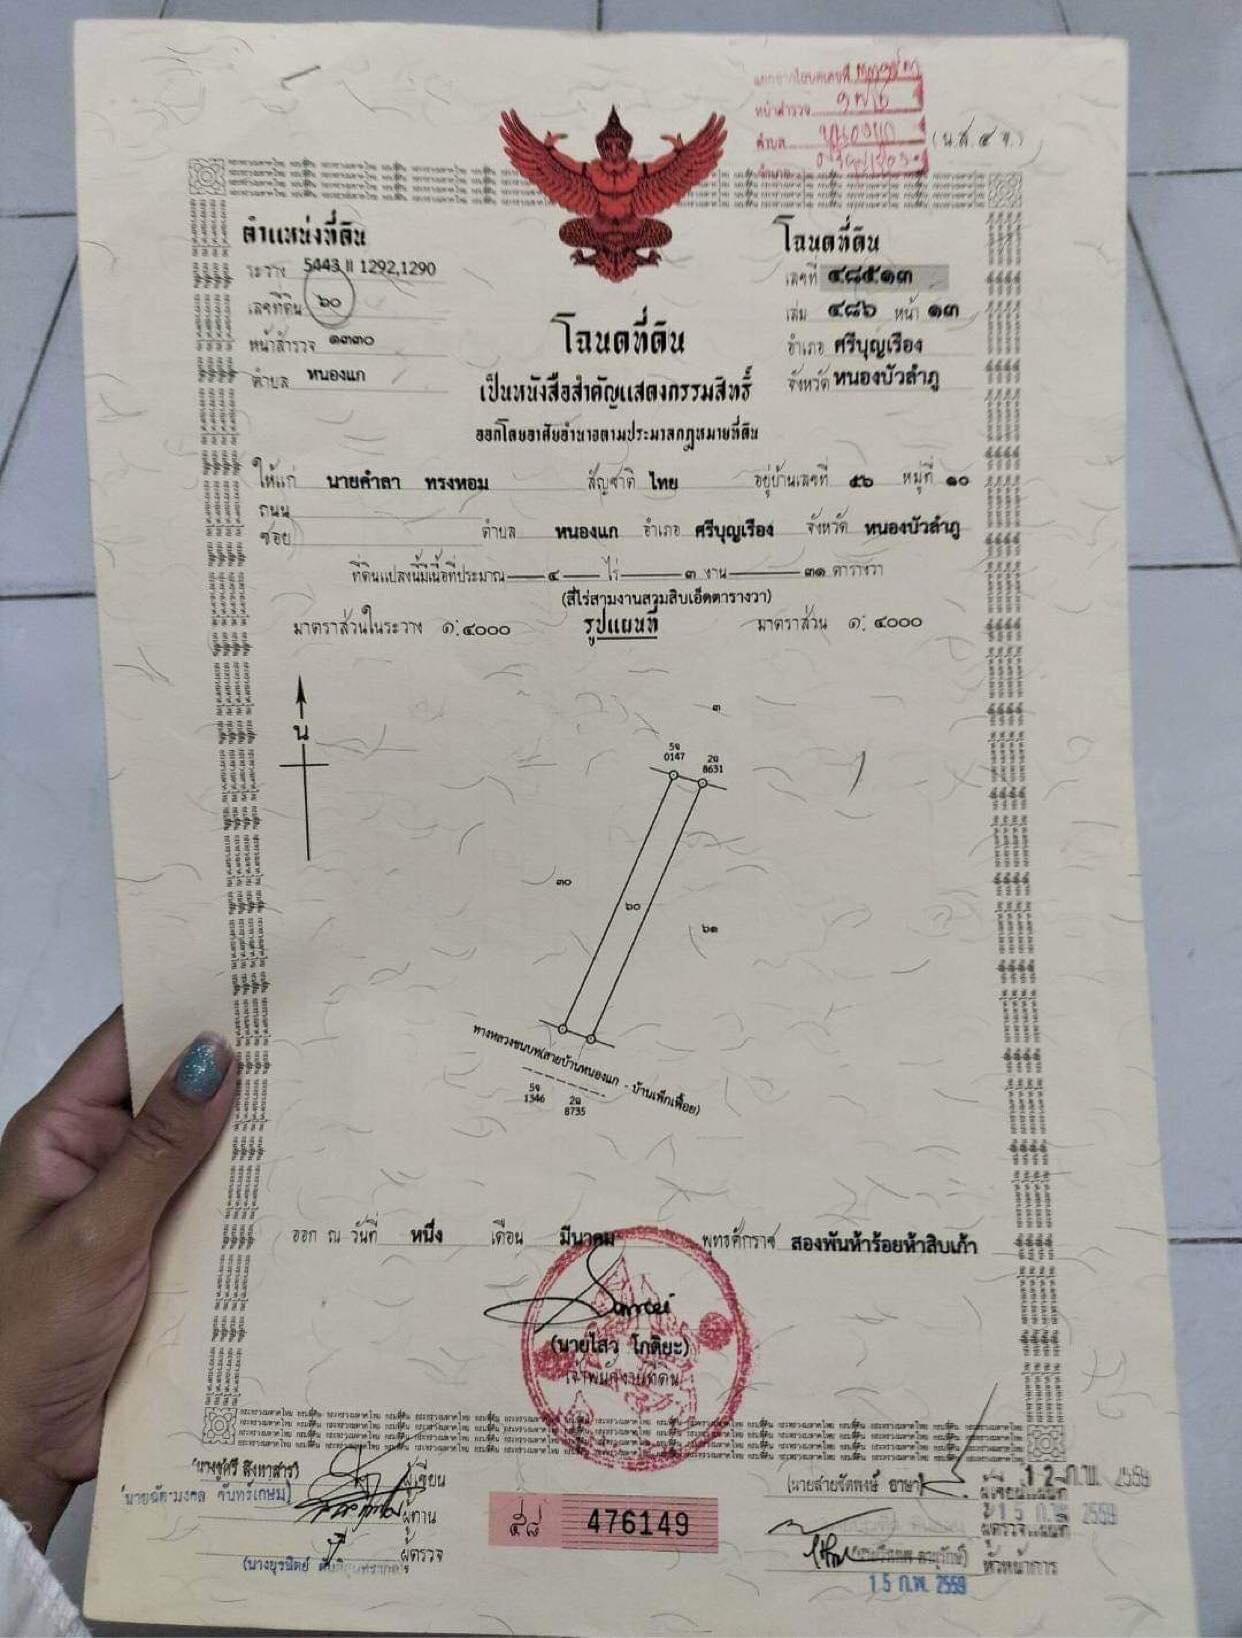 (น.ส.๔ จ.)
ตำแหน่งที่ดิน
ระวาง 5443 II 1292,1290
เลขที่ดิน ๖๐
หน้าสำรวจ ๑๓๓๐
ตำบล หนองแก
โฉนดที่ดิน
เลขที่ ๔๘๕๑๓
เล่ม ๔๘๖ หน้า ๑๓
อำเภอ ศรีบุญเรือง
จังหวัด หนองบัวลำภู
โฉนดที่ดิน
เป็นหนังสือสำคัญแสดงกรรมสิทธิ์
ออกโดยอาศัยอำนาจตามประมวลกฎหมายที่ดิน
ให้แก่ นายคำลา ทรงหอม สัญชาติ ไทย อยู่บ้านเลขที่ ๕๖ หมู่ที่ ๑๐
ถนน
ซอย ตำบล หนองแก อำเภอ ศรีบุญเรือง จังหวัด หนองบัวลำภู
ที่ดินแปลงนี้มีเนื้อที่ประมาณ ๔ ไร่ ๓ งาน ๓๑ ตารางวา
(สี่ไร่สามงานสามสิบเอ็ดตารางวา)
มาตราส่วนในระวาง ๑:๔๐๐๐ รูปแผนที่ มาตราส่วน ๑:๔๐๐๐
น
๓
5จ
0147
2ฉ
8631
๓๐
๖๐
๖๑
ทางหลวงชนบท(สายบ้านหนองแก - บ้านเพ็กเฟื้อย)
5จ
1346
2ฉ
8735
ออก ณ วันที่ หนึ่ง เดือน มีนาคม พุทธศักราช สองพันห้าร้อยห้าสิบเก้า
(นายไสว โกติยะ)
เจ้าพนักงานที่ดิน
(นางชูศรี สิงหาสาร) ผู้เขียน
ผู้ทาน
ผู้ตรวจ
๕๘ 476149
(นายสายชัดพงษ์ อาษา) 12 ก.พ. 2559
15 ก.พ. 2559
หัวหน้าการ
15 ก.พ. 2559